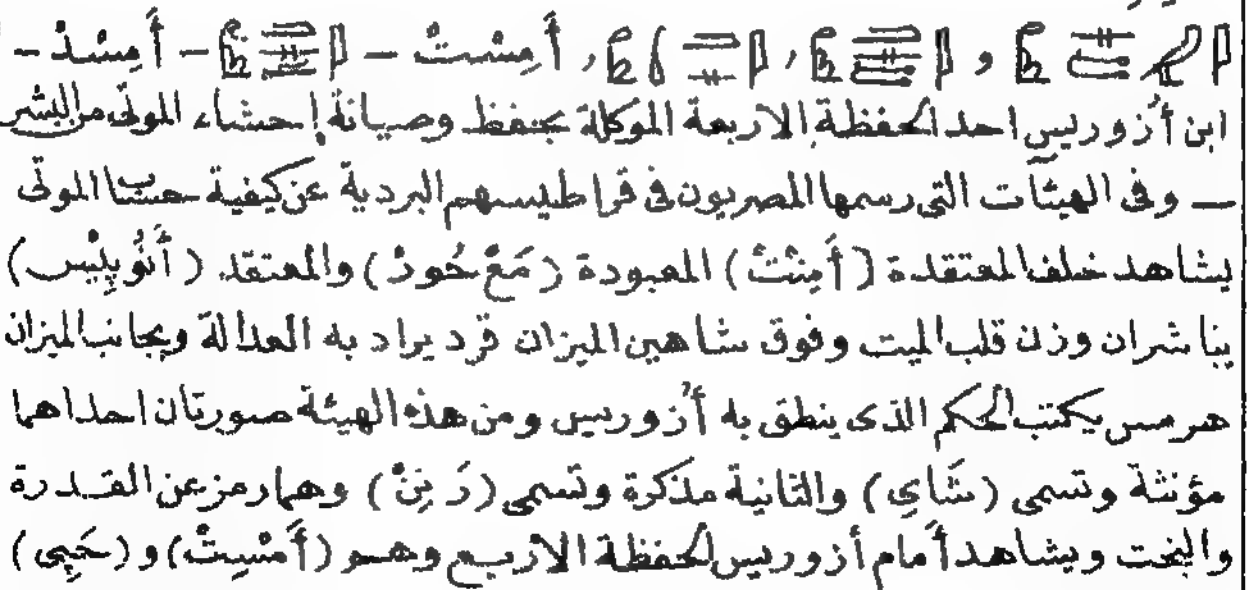 و , , أَمِسْتْ - - أَمِسْدْ -
ابن أُزوريس احد الحفظة الاربعة الموكلة بحفظ وصيانة إحشاء الموتى من البشر
— وفى الهيئآت التى رسمها المصريون فى قراطيسهم البردية عن كيفية حساب الموتى
يشاهد خلف المعتقدة (أَمِنْتْ) المعبودة (مَعْ خُورْ) والمعتقد (أَنُوبِيْس)
يباشران وزن قلب الميت وفوق شاهين الميزان قرد يراد به العدالة وبجانب الميزان
هرمس يكتب الحكم الذى ينطق به أُزوريس ومن هذه الهيئة صورتان احداهما
مؤنثة وتسمى (شَاىِ) والثانية مذكرة وتسمى (رَنِنْ) وهما رمز عن القدرة
والبخت ويشاهد أمام أزوريس الحفظة الاربع وهم (أَمْسِتْ) و (حَپِى)